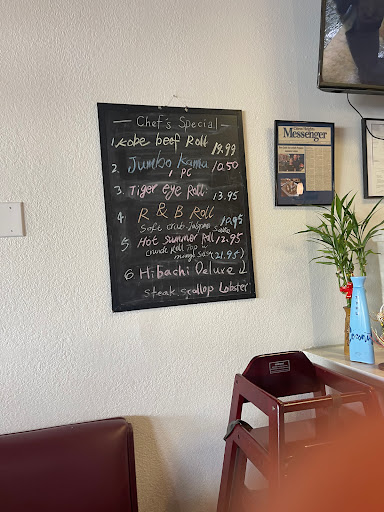 — Chef's Special —
1. Kobe beef Roll 19.99
2. Jumbo Kama 10.50
1 PC
3. Tiger eye Roll. 13.95
4 R & B Roll 10.95
Soft crab Jalapeno
5. Hot summer Roll 12.95
crunch Roll Top w
mango (21.95)
6 Hibachi Deluxe
steak scallop Lobster
Messenger